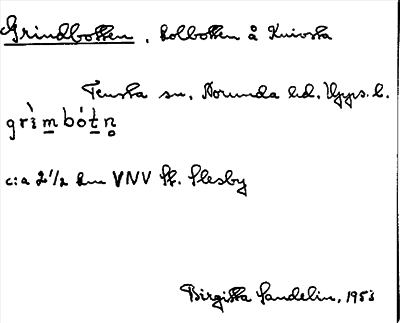 Grindbotten, kolbotten å Knivsta
Tensta sn, Norunda hd, Upps. l.
grìmbótn̥
c:a 2 1/2 km VNV St. Ilesby
Birgitta Sandelin, 1953